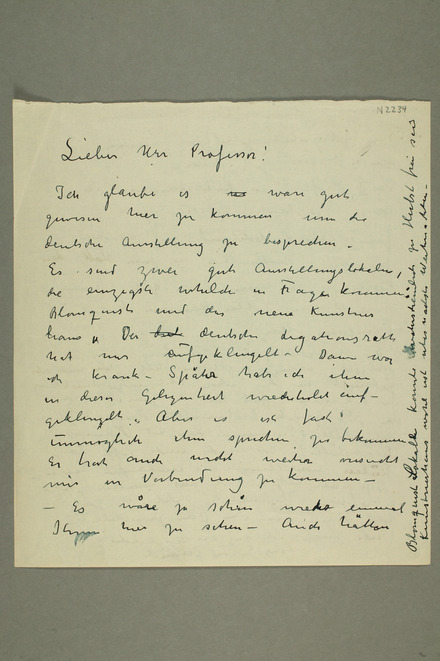 N 2234
Lieber Herr Professor!
Ich glaube es wäre gut
gewesen hier zu kommen um die
deutsche Ausstellung zu besprechen –
Es sind zwei gute Ausstellungslokalen,
die einzigste welche in Frage kommen
Blomqvists und das neue Künstner
haus „ Der deutsche Legationsrath
hat mir aufgeklingelt – Dann war
ich krank – Später hab ich ihm
in dieser Gelegenheit wiederholt auf-
geklingelt „ Aber es ist fast
unmöglich ihm sprechen zu bekommen
Er hat auch nicht weiter versucht
mir in Verbindung zu kommen –
– Es wäre ja schön wieder einmal
Ihnen hier zu sehen – Auch hätten
Blomqvist Lokale konnte wahrscheinlich zu Herbst frei sein
Künstnerhaus wohl ist